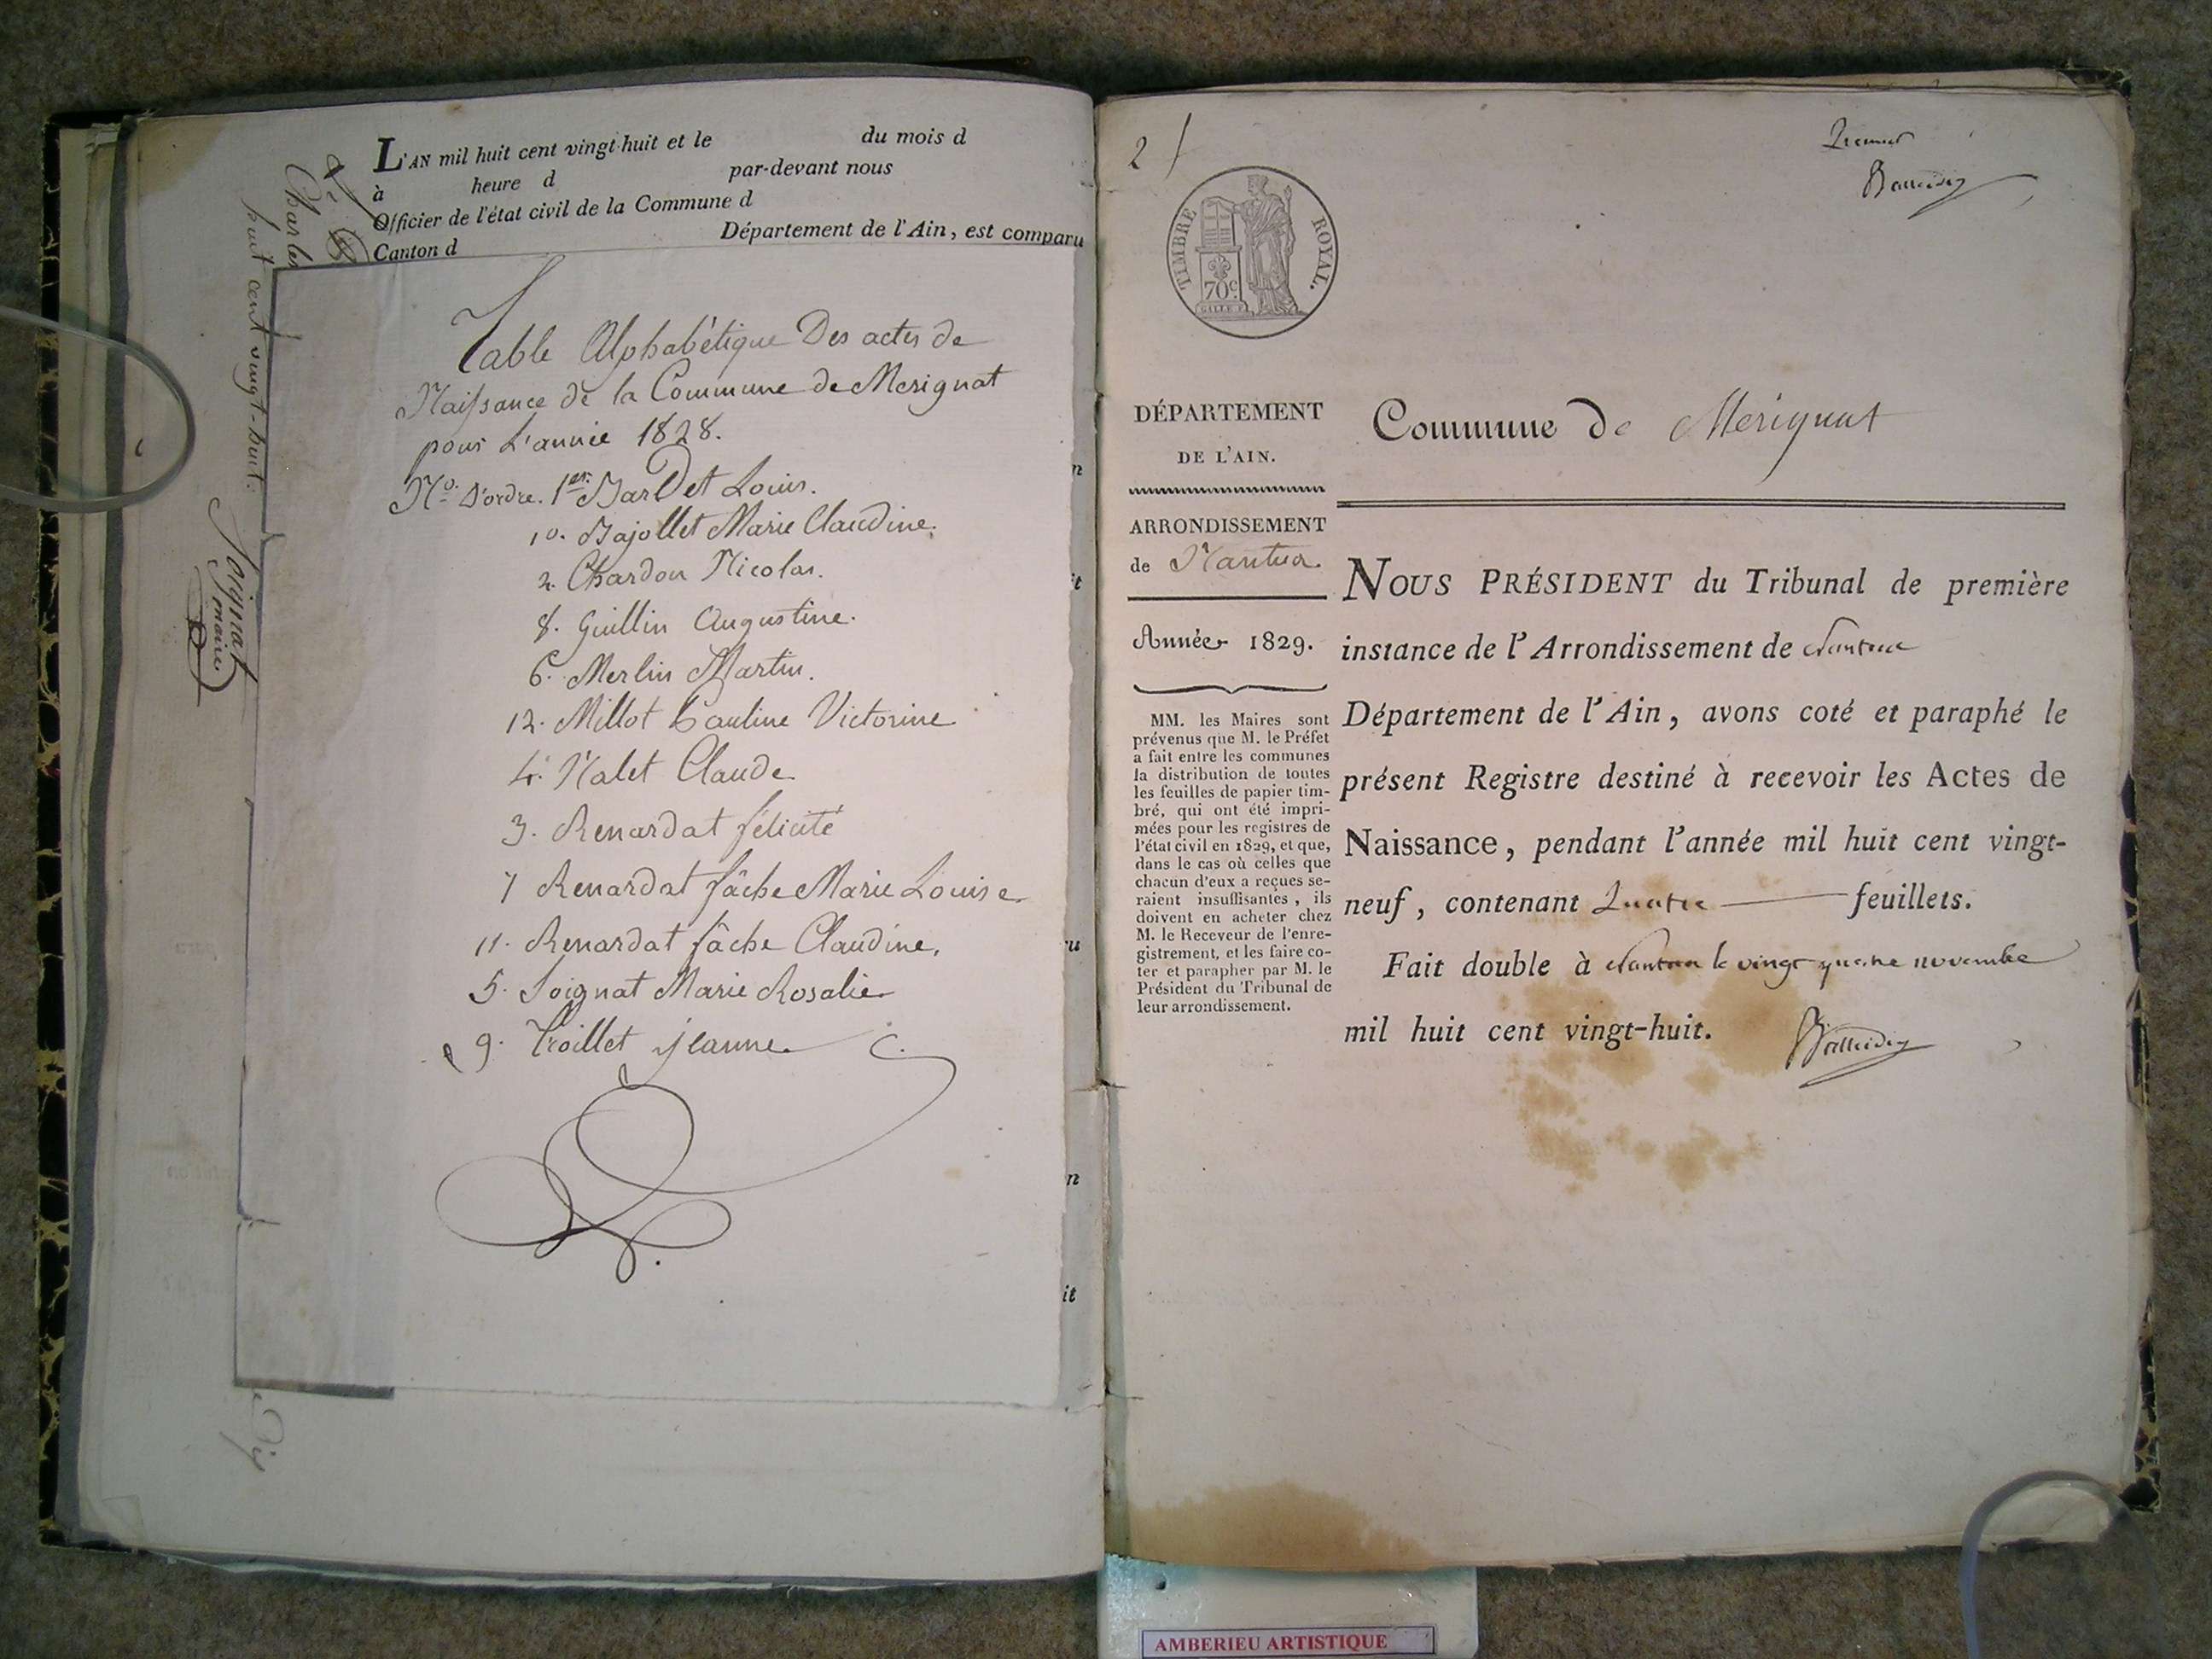 L'AN mil huit cent vingt-huit et le du mois d
à heure d par-devant nous
Officier de l'état civil de la Commune d
Canton d Département de l'Ain, est comparu
Charles
huit cent vingt-huit.
Soignat
maire
Table Alphabétique Des actes de
Naissance de la Commune de Merignat
pour L'année 1828.
No. D'ordre. 1er. Bardet Louis.
10. Bajollet Marie Claudine.
2. Chardon Nicolas.
8. Guillin Augustine.
6. Merlin Martin.
12. Millot Pauline Victorine
4. Nalet Claude
3. Renardat félicité
7 Renardat fâche Marie Louise
11. Renardat fâche Claudine.
5. Soignat Marie Rosalie
9. Troillet jeanne
n
it
u
n
it
2
Premier
TIMBRE ROYAL.
70c.
DÉPARTEMENT
DE L'AIN.
ARRONDISSEMENT
de Nantua
Année 1829.
MM. les Maires sont
prévenus que M. le Préfet
a fait entre les communes
la distribution de toutes
les feuilles de papier tim-
bré, qui ont été impri-
mées pour les registres de
l'état civil en 1829, et que,
dans le cas où celles que
chacun d'eux a reçues se-
raient insuffisantes, ils
doivent en acheter chez
M. le Receveur de l'enre-
gistrement, et les faire co-
ter et parapher par M. le
Président du Tribunal de
leur arrondissement.
Commune de Mérignat
NOUS PRÉSIDENT du Tribunal de première
instance de l'Arrondissement de Nantua
Département de l'Ain, avons coté et paraphé le
présent Registre destiné à recevoir les Actes de
Naissance, pendant l'année mil huit cent vingt-
neuf, contenant Quatre feuillets.
Fait double à Nantua le vingt quatre novembre
mil huit cent vingt-huit.
AMBERIEU ARTISTIQUE